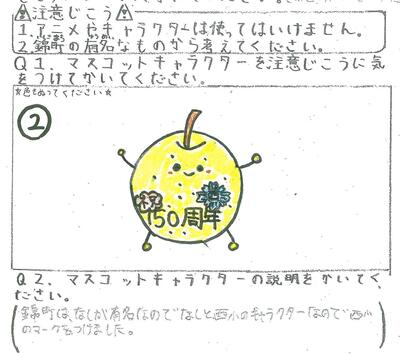 注意じこう
1.アニメやキャラクターは使ってはいけません。
2.錦町の有名なものから考えてください。
Q1.マスコットキャラクターを注意じこうに気
をつけてかいてください。
★色もぬってください★
②
祝
150周年
Q2.マスコットキャラクターの説明をかいてく
ださい。
錦町は、なしが有名なのでなしと西小のキャラクターなので西小
のマークをつけました。